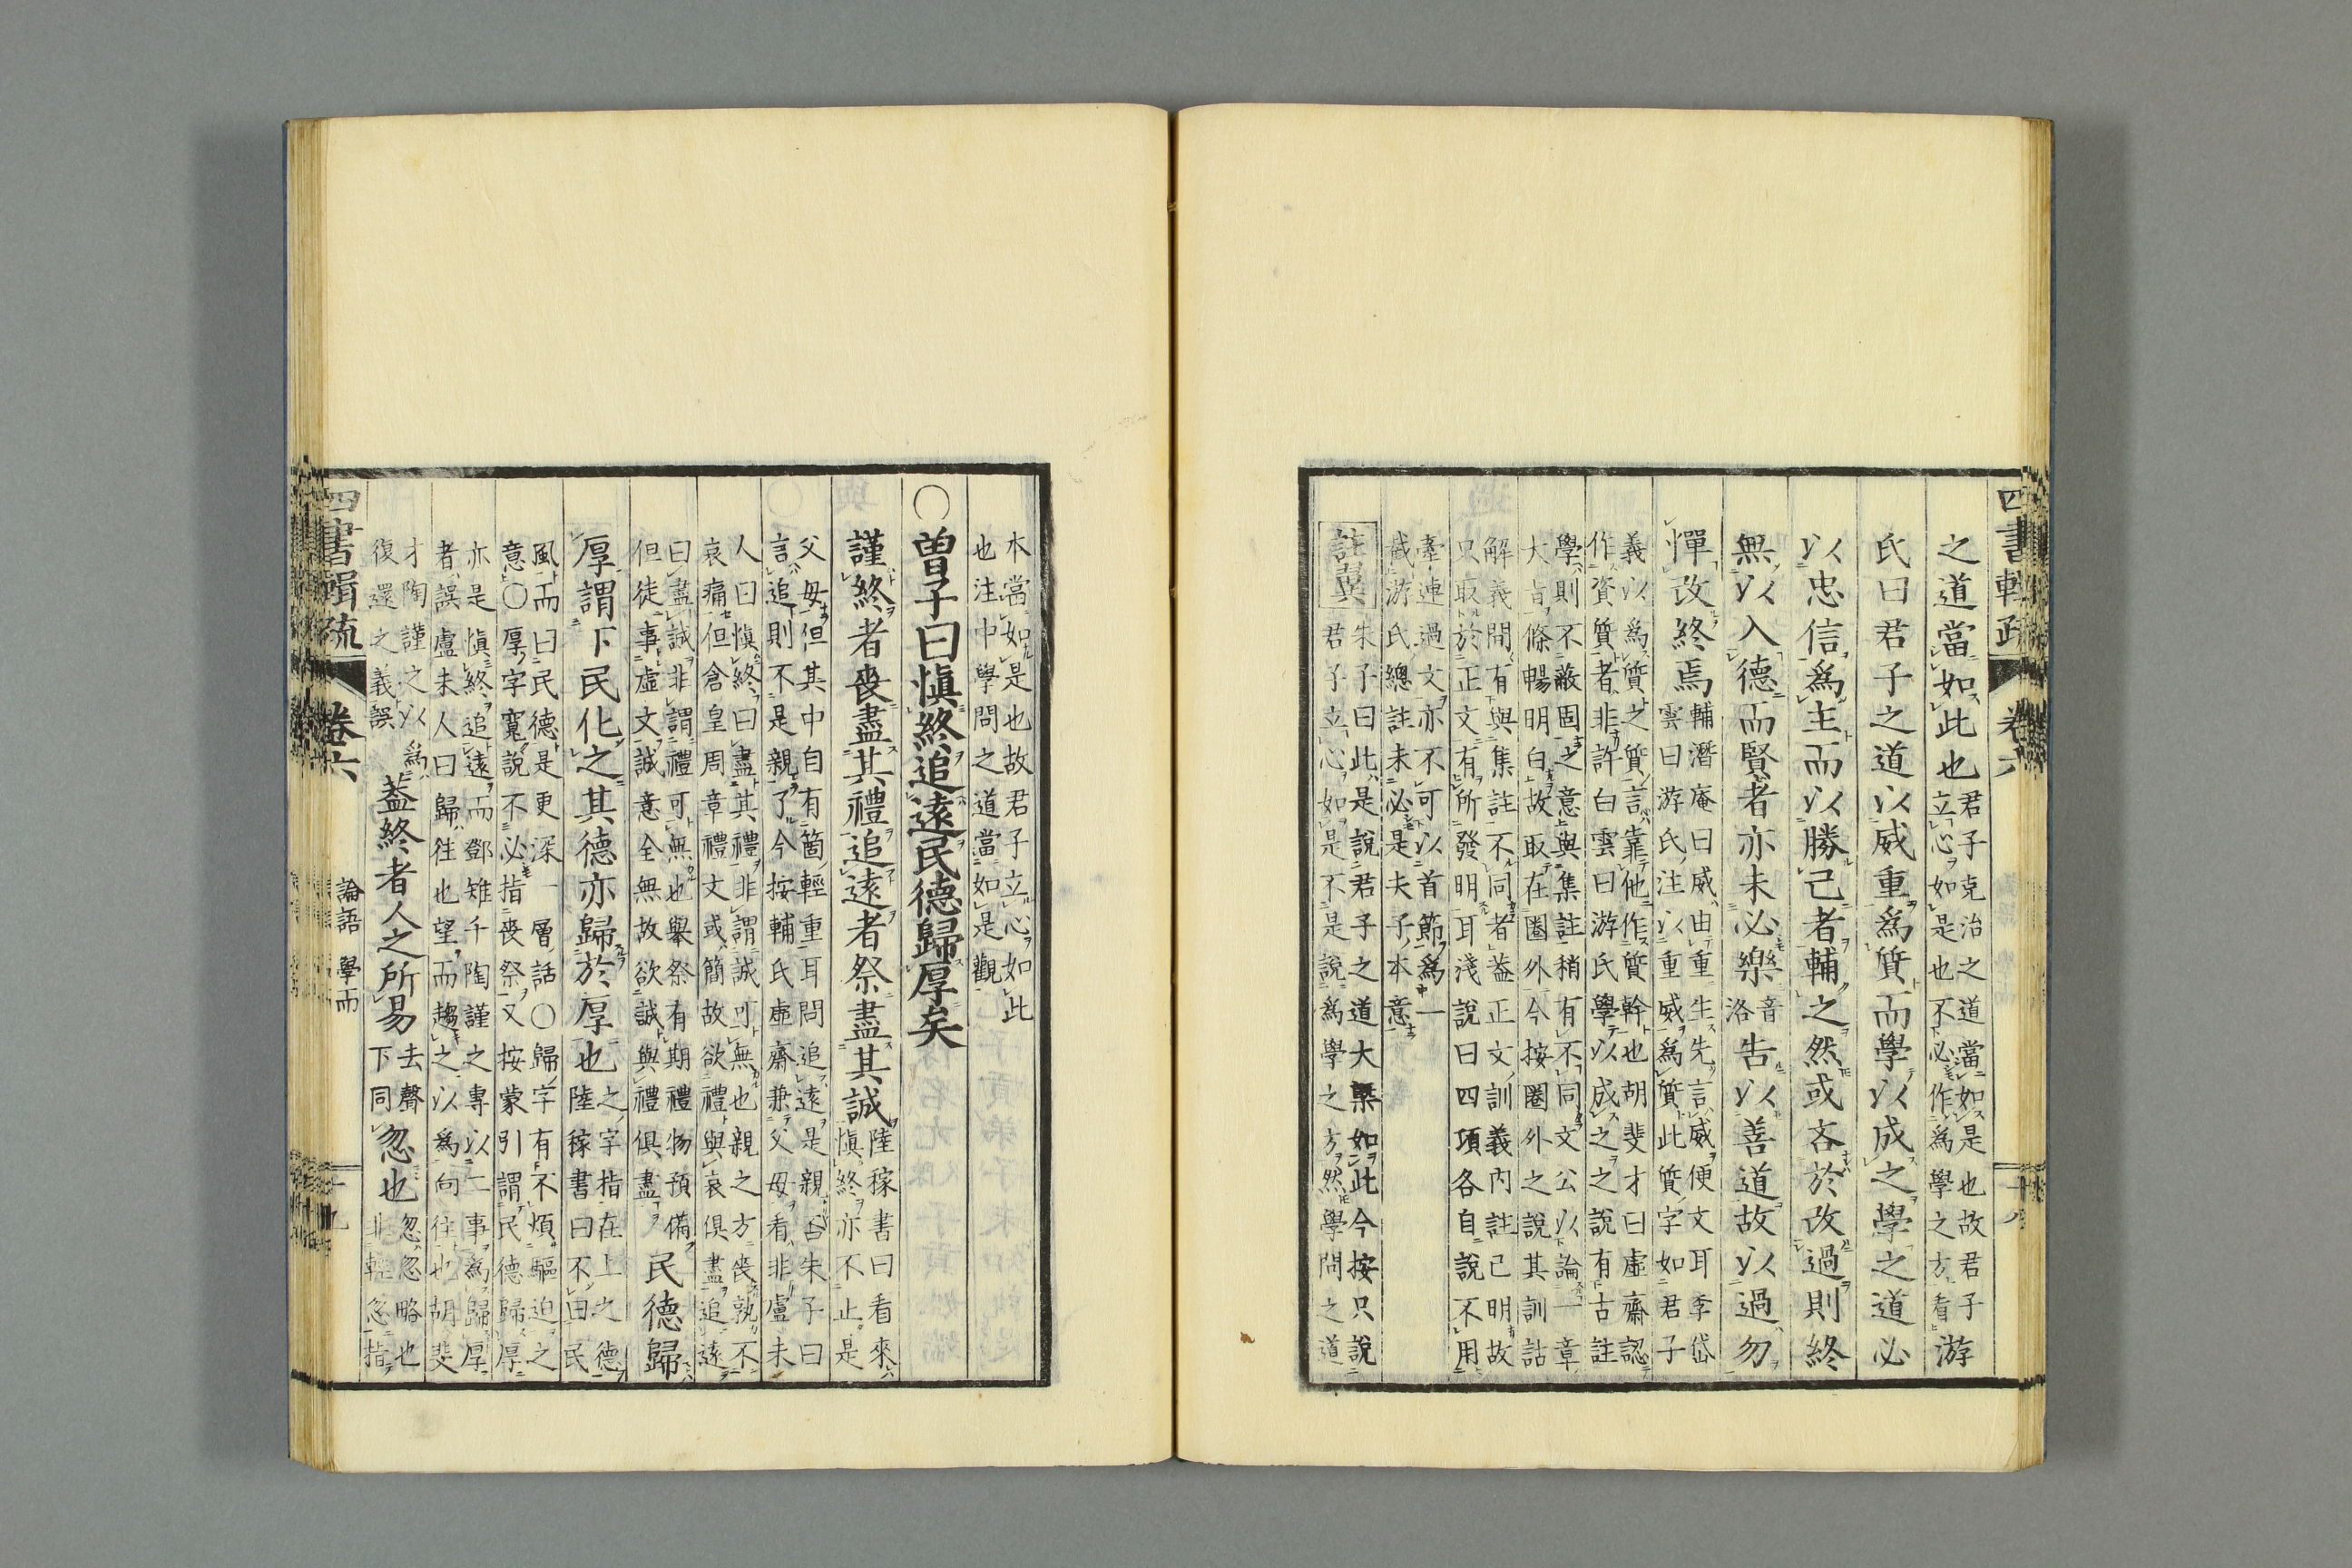 四書輯疏 卷六
之道當如此也 君子克治之道當如是也故君子
立心如是也不必作爲學之方看 游
氏曰君子之道以威重爲質而學以成之學之道必
以忠信爲主而以勝己者輔之然或吝於改過則終
無以入德而賢者亦未必樂 音洛 告以善道故以過勿
憚改終焉 輔潛庵曰威由重生先言威便文耳李岱
雲曰游氏注以重威爲質此質字如君子
義以爲質之質言靠他作質幹也胡斐才曰虛齋認
作資質者非許白雲曰游氏學以成之之說有古註
學則不蔽固之意與集註稍有不同文公以論一章
大旨條暢明白故取在圈外今按圈外之說其訓詁
解義間有與集註不同者蓋正文訓義內註已明故
只取於正文有所發明耳淺說曰四項各自說不用
牽連過文亦不可以首節爲一
截游氏總註未必是夫子本意
註翼 朱子曰此是說君子之道大槩如此今按只說
君子立心如是不是說爲學之方然學問之道
本當如是也故君子立心如此
也注中學問之道當如是觀
○曾子曰愼終追遠民德歸厚矣
謹終者喪盡其禮追遠者祭盡其誠 陸稼書曰看來
愼終亦不止是
父母但其中自有箇輕重耳問追遠是親否朱子曰
言追則不是親了今按輔氏虛齋兼父母看非盧未
人曰愼終曰盡其禮非謂誠可無也親之方喪孰不
哀痛但倉皇周章禮文或簡故欲禮與哀俱盡追遠
曰盡誠非謂禮可無也舉祭有期禮物預備
但徒事虛文誠意全無故欲誠與禮俱盡 民德歸
厚謂下民化之其德亦歸於厚也 之字指在上之德
陸稼書曰不曰民
風而曰民德是更深一層話○歸字有不煩驅迫之
意○厚字寬說不必指喪祭又按蒙引謂民德歸厚
亦是愼終追遠而鄧雉千陶謹之專以二事爲歸厚
者誤盧未人曰歸徃也望而趨之以爲向往也胡斐
才陶謹之以爲
復還之義誤 蓋終者人之所易 去聲下同 忽也 忽忽略也
非輕忽指
四書輯疏 卷六 論語 學而